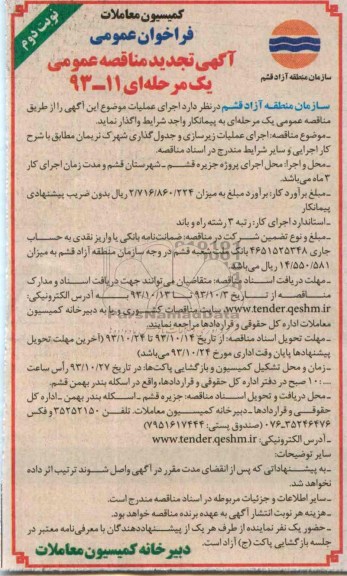 نوبت دوم
کمیسیون معاملات
فراخوان عمومی
آگهی تجدید مناقصه عمومی
یک مرحله‌ای ۱۱–۹۳
سازمان منطقه آزاد قشم
سازمان منطقه آزاد قشم درنظر دارد اجرای عملیات موضوع این آگهی را از طریق
مناقصه عمومی یک مرحله‌ای به پیمانکار واجد شرایط واگذار نماید.
-موضوع مناقصه: اجرای عملیات زیرسازی و جدول‌گذاری شهرک نریمان مطابق با شرح
کار اجرایی و سایر شرایط مندرج در اسناد مناقصه.
-محل و اجرا: محل اجرای پروژه جزیره قشم – شهرستان قشم و مدت زمان اجرای کار
۳ ماه می‌باشد.
-مبلغ برآورد کار: برآورد مبلغ به میزان ۲/۷۱۶/۸۶۰/۲۲۴ ریال بدون ضریب پیشنهادی
پیمانکار
-استاندارد اجرای کار: رتبه ۳ رشته راه و باند
-مبلغ و نوع تضمین شرکت در مناقصه: ضمانت‌نامه بانکی یا واریز نقدی به حساب
جاری ۴۶۵۱۵۲۵۳۴۸ بانک شعبه قشم در وجه سازمان منطقه آزاد قشم به میزان
۱۴/۵۵۰/۵۸۱ ریال می‌باشد
-مهلت دریافت اسناد مناقصه: متقاضیان می‌توانند جهت دریافت اسناد و مدارک
مناقصه از تاریخ ۹۳/۱۰/۳ تا ۹۳/۱۰/۱۳ به آدرس الکترونیکی:
www.tender.qeshm.ir، سایت مناقصات کشوری و یا به دبیرخانه کمیسیون
معاملات اداره کل حقوقی و قراردادها مراجعه نمایند.
-مهلت تحویل اسناد مناقصه: از تاریخ ۹۳/۱۰/۱۴ تا ۹۳/۱۰/۲۴ (آخرین مهلت تحویل
پیشنهادها پایان وقت اداری مورخ ۹۳/۱۰/۲۴ می‌باشد)
-زمان و محل تشکیل کمیسیون و بازگشایی پاکت‌ها: در تاریخ ۹۳/۱۰/۲۷ رأس ساعت
۱۰:۰۰ صبح در دفتر اداره کل حقوقی و قراردادها، واقع در اسکله بندر بهمن قشم.
-محل دریافت و تحویل اسناد مناقصه: جزیره قشم – اسکله بندر بهمن – اداره کل
حقوقی و قراردادها – دبیرخانه کمیسیون معاملات. تلفن ۳۵۲۵۲۱۵۰ و فکس
۰۷۶-۳۵۲۴۶۴۷۶ (صندوق پستی: ۷۹۵۱۶۱۷۴۴۴)
-آدرس الکترونیکی: www.tender.qeshm.ir
سایر توضیحات:
-به پیشنهاداتی که پس از انقضای مدت مقرر در آگهی واصل شوند ترتیب اثر داده
نخواهد شد.
-سایر اطلاعات و جزئیات مربوطه در اسناد مناقصه مندرج است.
-هزینه هر نوبت انتشار آگهی به عهده برنده مناقصه خواهد بود.
-حضور یک نفر نماینده از طرف هر یک از پیشنهاددهندگان با معرفی‌نامه معتبر در
جلسه بازگشایی پاکت (ج) آزاد است.
دبیرخانه کمیسیون معاملات